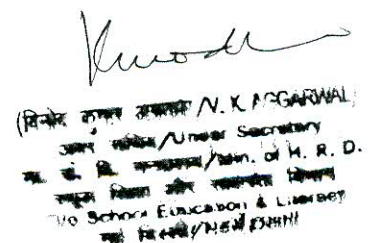 (विनोद कुमार अग्रवाल/V. K. AGGARWAL)
अवर सचिव/Under Secretary
मा. सं. वि. मन्त्रालय/Min. of H. R. D.
स्कूल शिक्षा और साक्षरता विभाग
D/o School Education & Literacy
नई दिल्ली/NEW DELHI